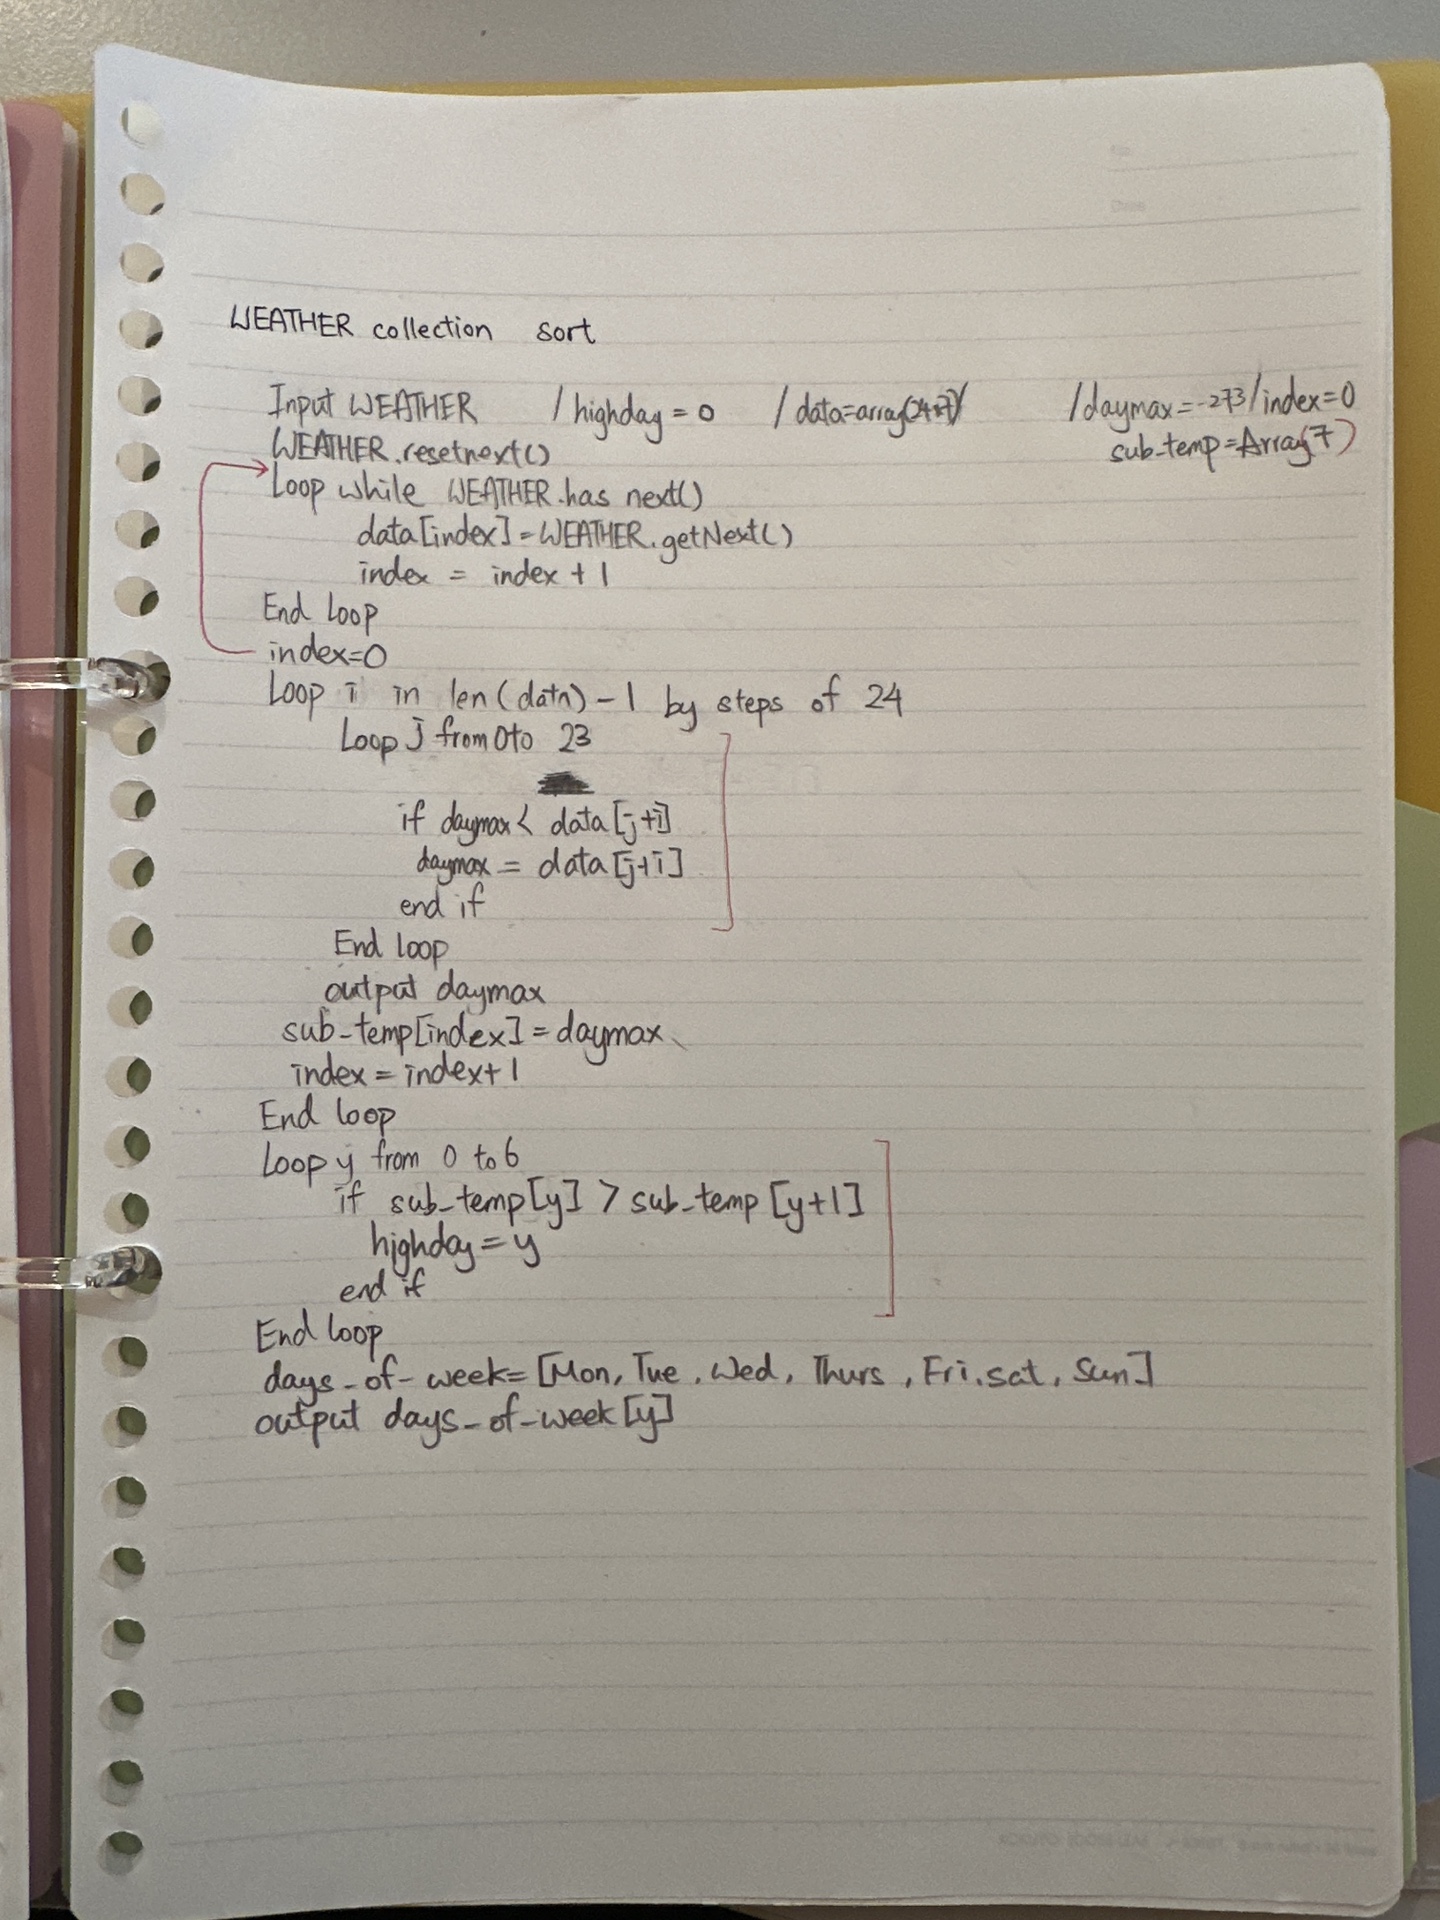 WEATHER collection sort
Input WEATHER / highday = 0 / data=array(24*7)/ /daymax=-273/index=0
WEATHER.resetnext() sub-temp=Array(7)
Loop while WEATHER.has next()
data[index]=WEATHER.getNext()
index = index + 1
End loop
index=0
Loop i in len(data)-1 by steps of 24
Loop j from 0 to 23
if daymax< data[j+i]
daymax = data[j+i]
end if
End loop
output daymax
sub-temp[index]=daymax
index = index+1
End loop
Loop y from 0 to 6
if sub-temp[y] > sub-temp[y+1]
highday=y
end if
End loop
days-of-week=[Mon, Tue, Wed, Thurs, Fri, sat, Sun]
output days-of-week[y]